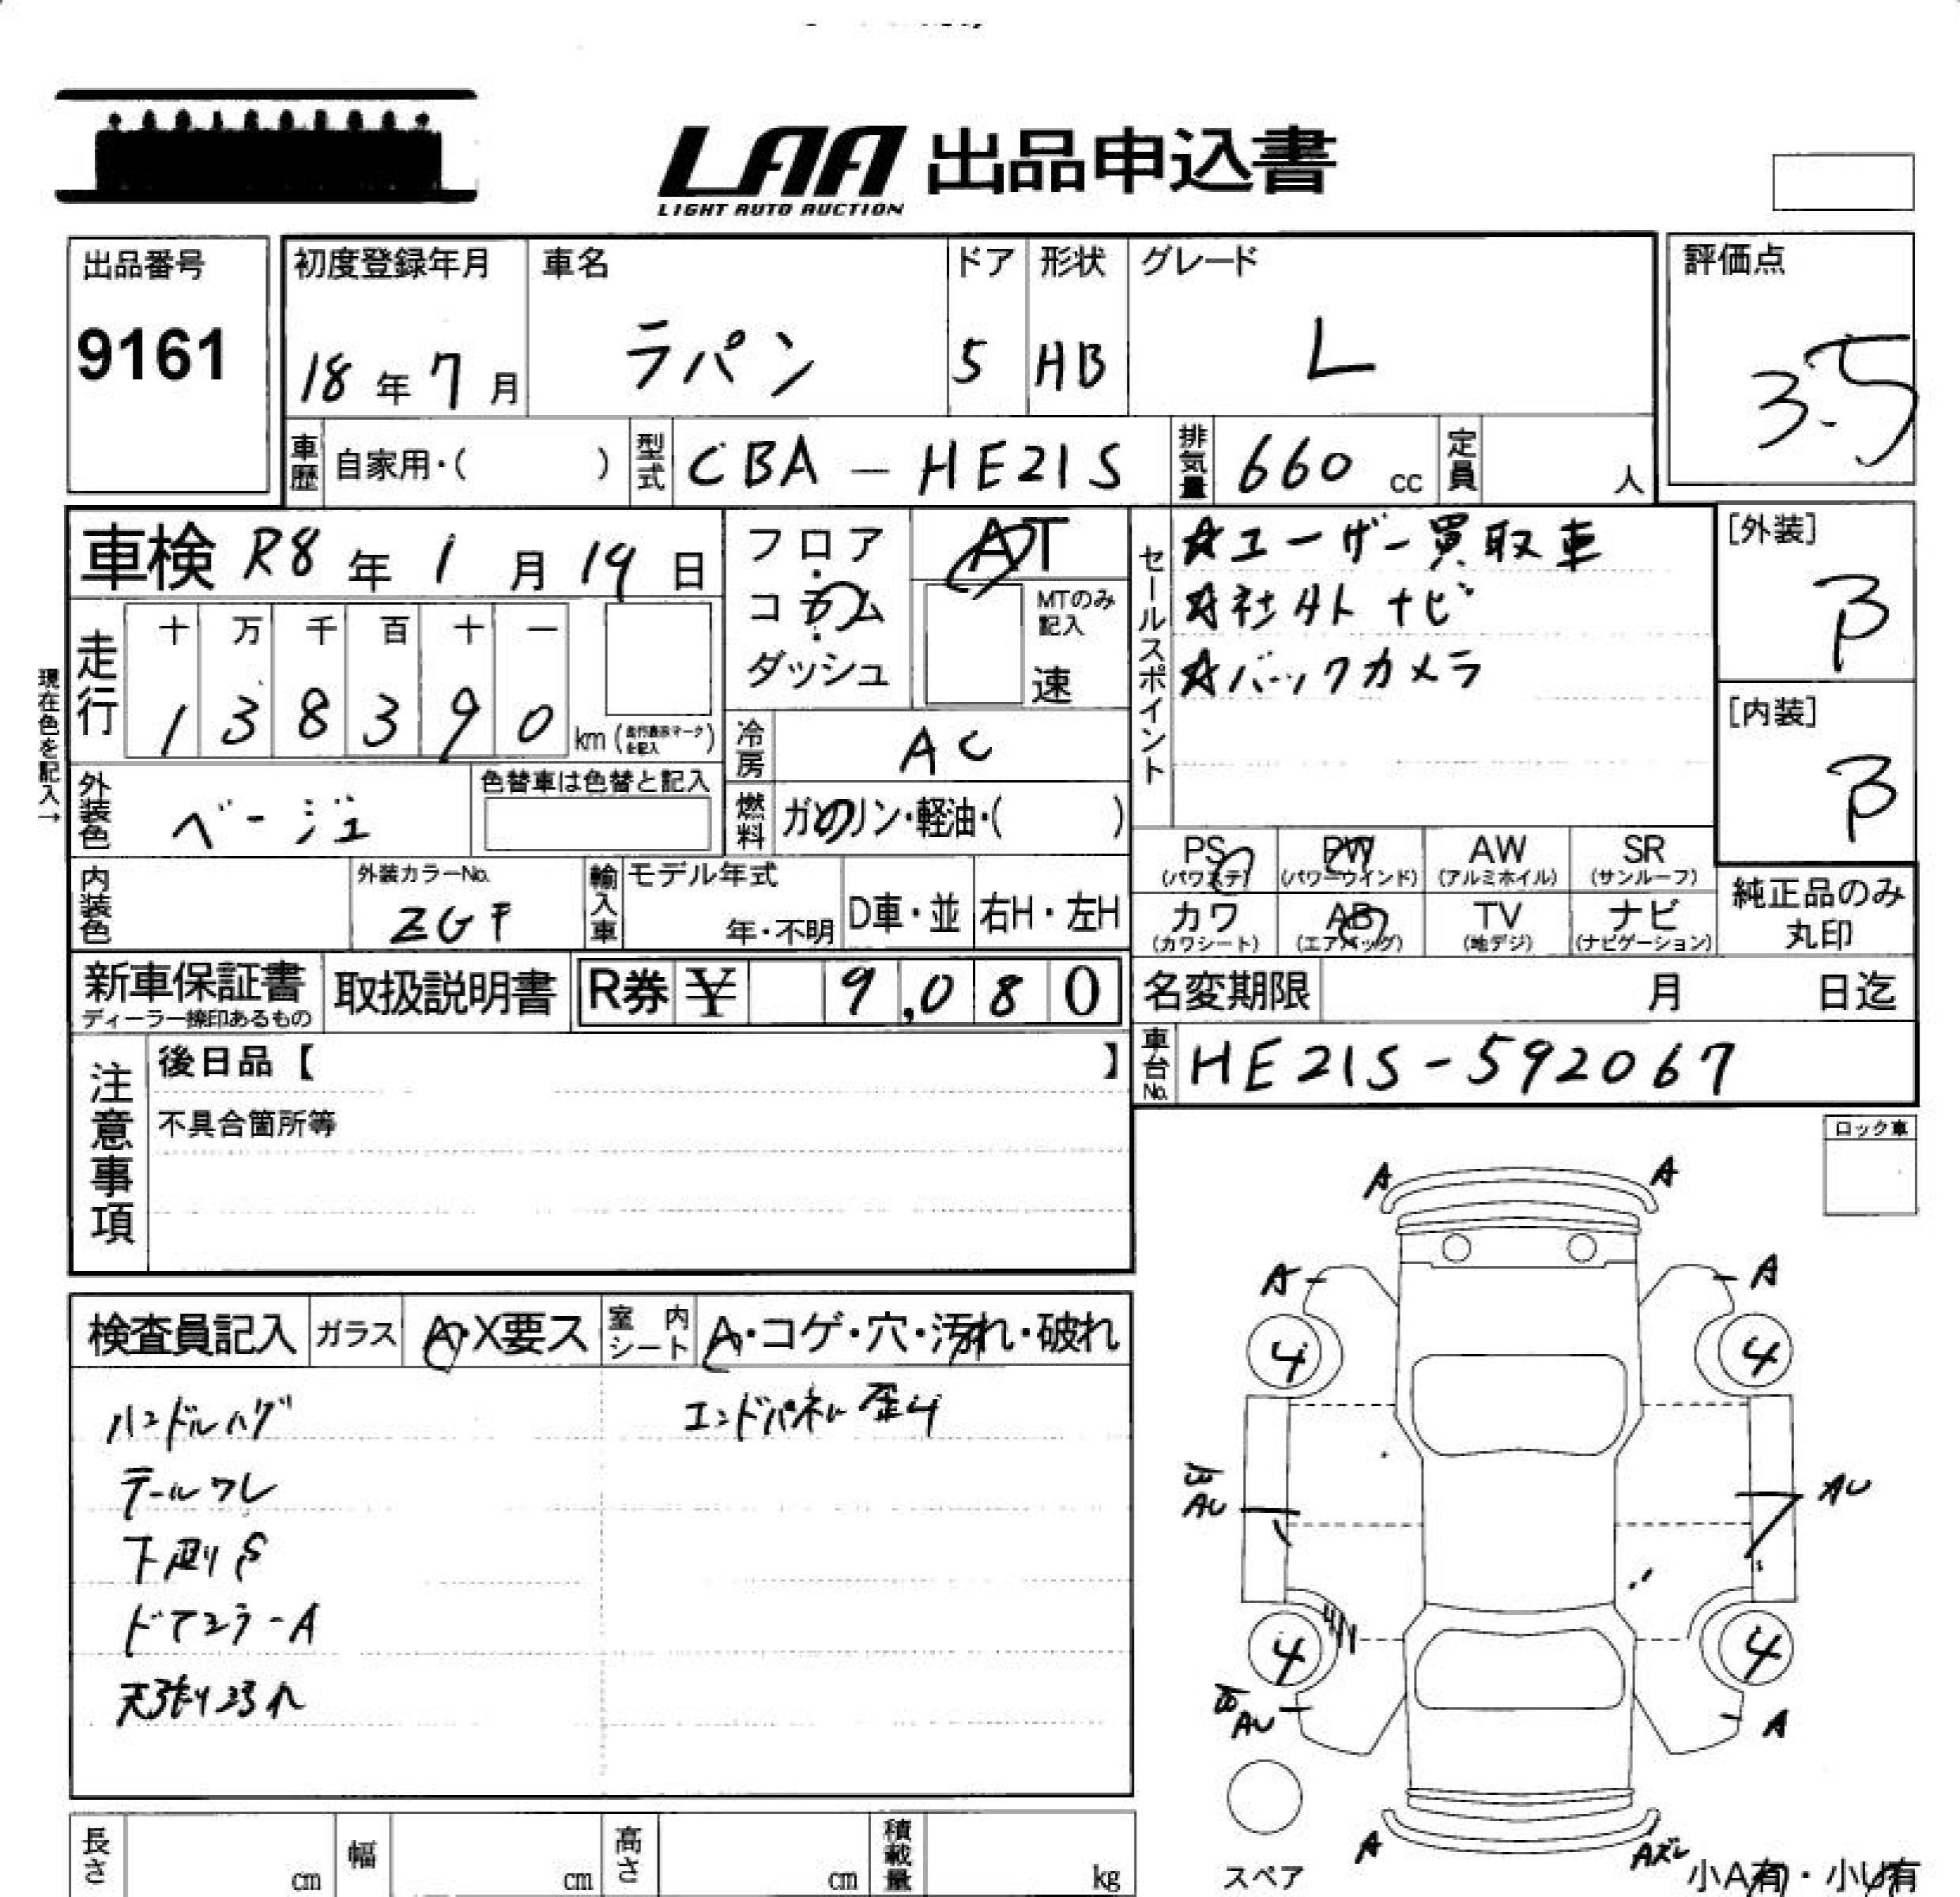 LAA 出品申込書
LIGHT AUTO AUCTION
出品番号
9161
初度登録年月
18年7月
車名
ラパン
ドア
5
形状
HB
グレード
L
評価点
3.5
車歴 自家用・( )
型式 CBA-HE21S
排気量 660 cc
定員 人
車検 R8年1月19日
フロア・コラム・ダッシュ
AT
MTのみ記入
速
セールスポイント
☆ユーザー買取車
☆社外ナビ
☆バックカメラ
[外装]
B
[内装]
B
現在色を記入→
走行
十 万 千 百 十 一
1 3 8 3 9 0 km (走行表示マークを記入)
冷房 AC
外装色 ベージュ
色替車は色替と記入
燃料 ガソリン・軽油・( )
PS (パワステ)
PW (パワーウインド)
AW (アルミホイル)
SR (サンルーフ)
カワ (カワシート)
AB (エアバッグ)
TV (地デジ)
ナビ (ナビゲーション)
純正品のみ丸印
内装色
外装カラーNo.
ZGF
輸入車
モデル年式
年・不明
D車・並
右H・左H
新車保証書
ディーラー捺印あるもの
取扱説明書
R券 ¥ 9,080
名変期限 月 日迄
車台No. HE21S-592067
注意事項
後日品【 】
不具合箇所等
ロック車
検査員記入
ガラス A・X要ス
室内シート A・コゲ・穴・汚れ・破れ
ハンドルハゲ
エンドパネル歪み
テールワレ
下廻りS
ドアミラーA
天張り汚れ
A A
A A
4 4
AU AU
4 4
AU A
A Aズレ
スペア
小A有・小U有
長さ cm
幅 cm
高さ cm
積載量 kg